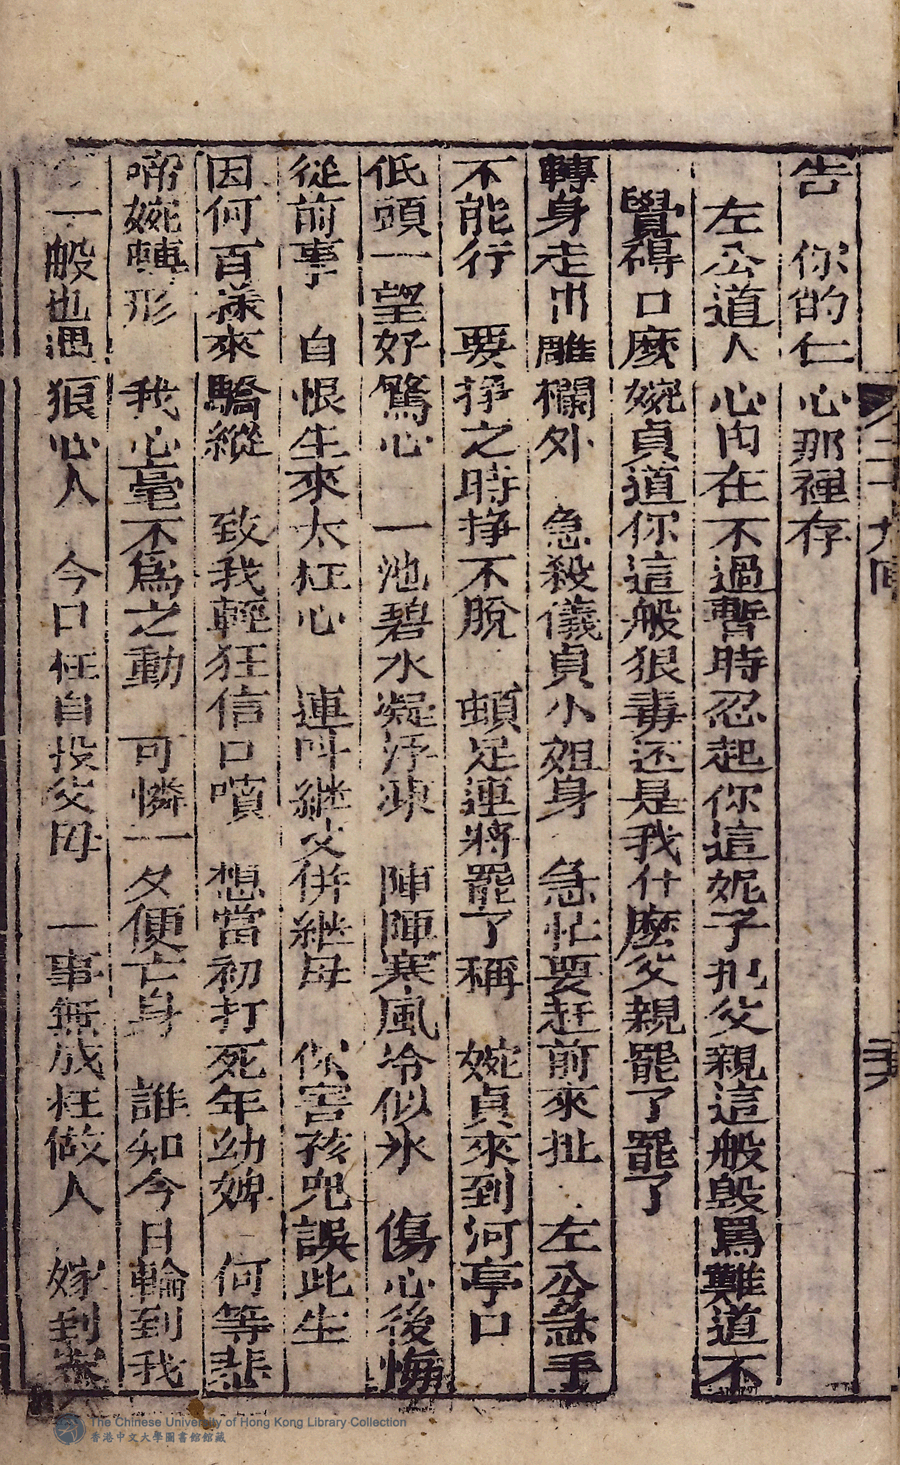 告 你的仁心那裡存
左公道人心内在不過暫時忍起你這妮子把父親這般毀罵難道不
覺碍口麽婉貞道你這般狠毒还是我什麽父親罷了罷了
轉身走出雕欄外 急殺儀貞小姐身 急忙要赶前來扯 左公急手
不能行 要挣之時挣不脫 頓足連將罷了稱 婉貞來到河亭口
低頭一望好驚心 一池碧水凝浮凍 陣陣寒風冷似氷 傷心後悔
從前事 自恨生來太枉心 連呌継父併継母 你害孩兒誤此生
因何百樣來驕縱 致我輕狂信口噴 想當初打死年幼婢 何等悲
啼婉轉形 我心毫不爲之動 可憐一夕便亡身 誰知今日輪到我
一般也遇狠心人 今口枉自投父母 一事無成枉做人 嫁到
二十九囬
The Chinese University of Hong Kong Library Collection
香港中文大學圖書館館藏